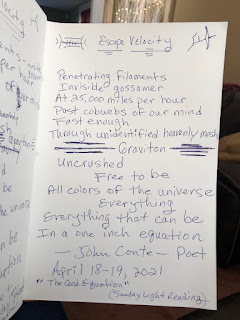 Escape Velocity
Penetrating Filaments
Invisible gossomer
At 25,000 miles per hour
Past cobwebs of our mind
Fast enough
Through unidentified heavenly mesh
Graviton
Uncrushed
Free to be
All colors of the universe
Everything
Everything that can be
In a one inch equation
— John Conte — Poet
April 18-19, 2021
"The God Equation"
(Sunday Light Reading)